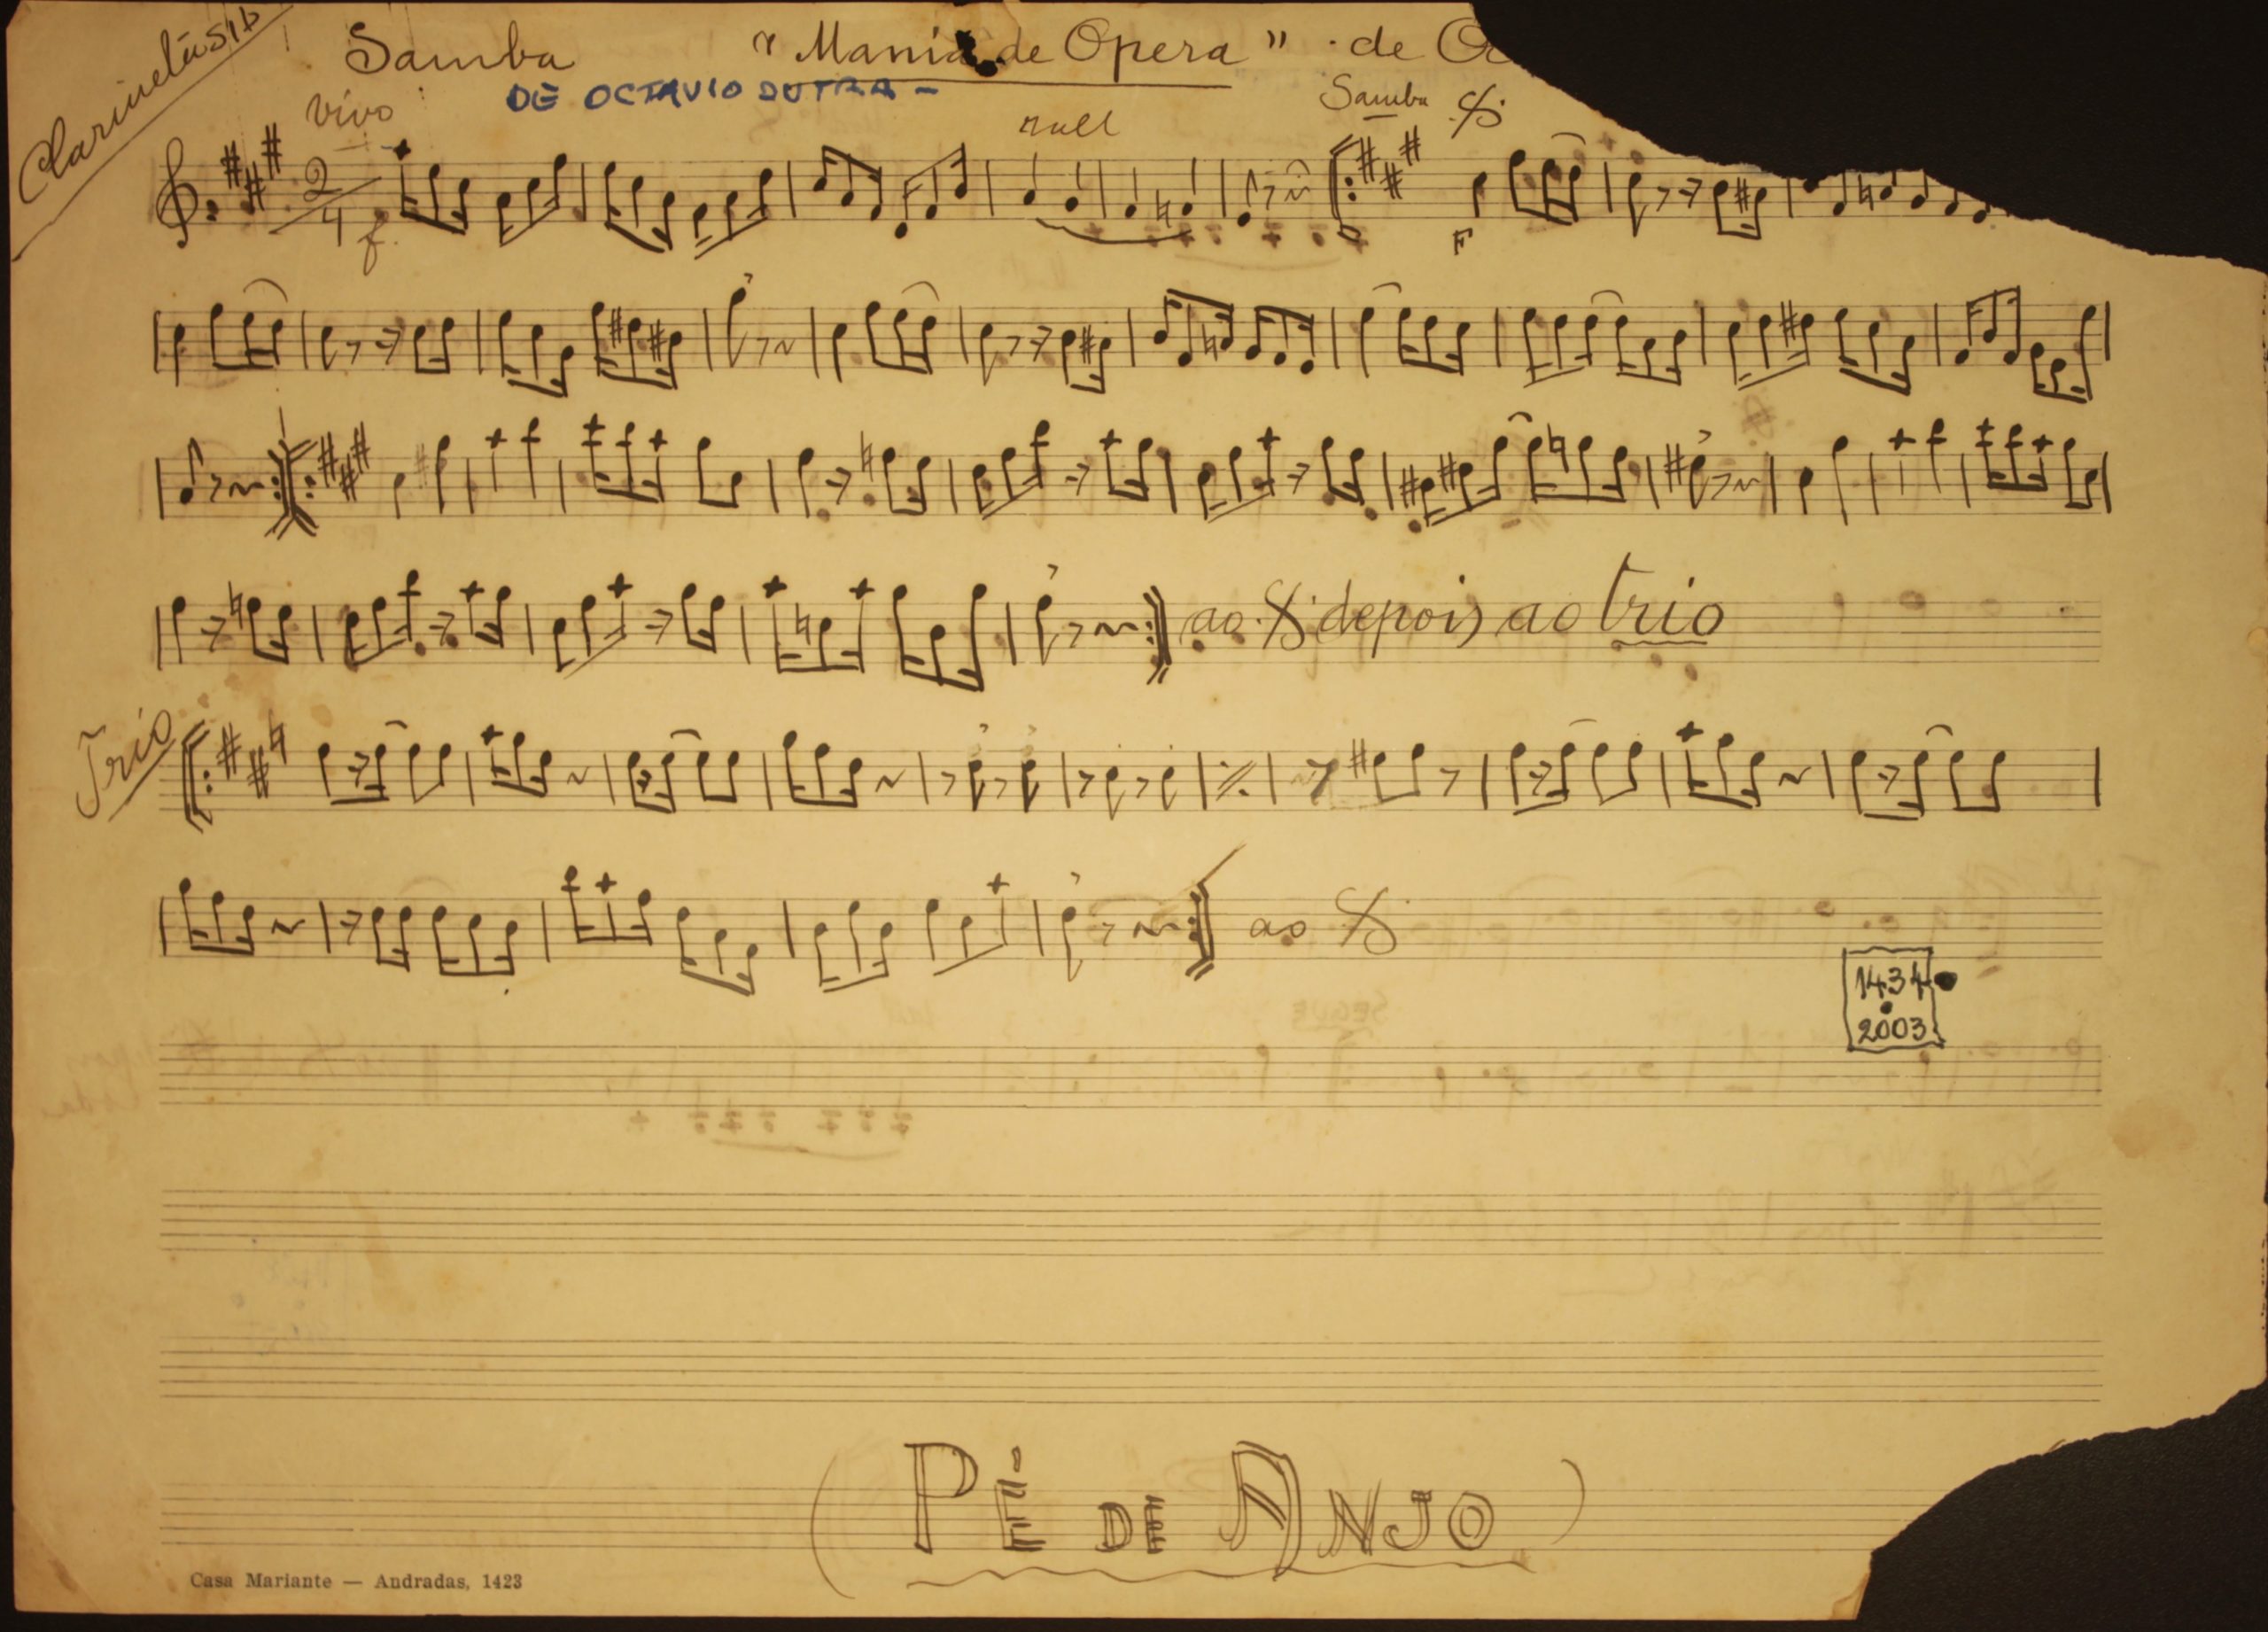 Clarinetas ib
Samba "Mania de Opera" de Oc
DE OCTAVIO DUTRA -
vivo
rall
Samba
2/4
f.
F
ao depois ao trio
Trio
ao
1434
2003
(PÉ DE ANJO)
Casa Mariante — Andradas, 1423